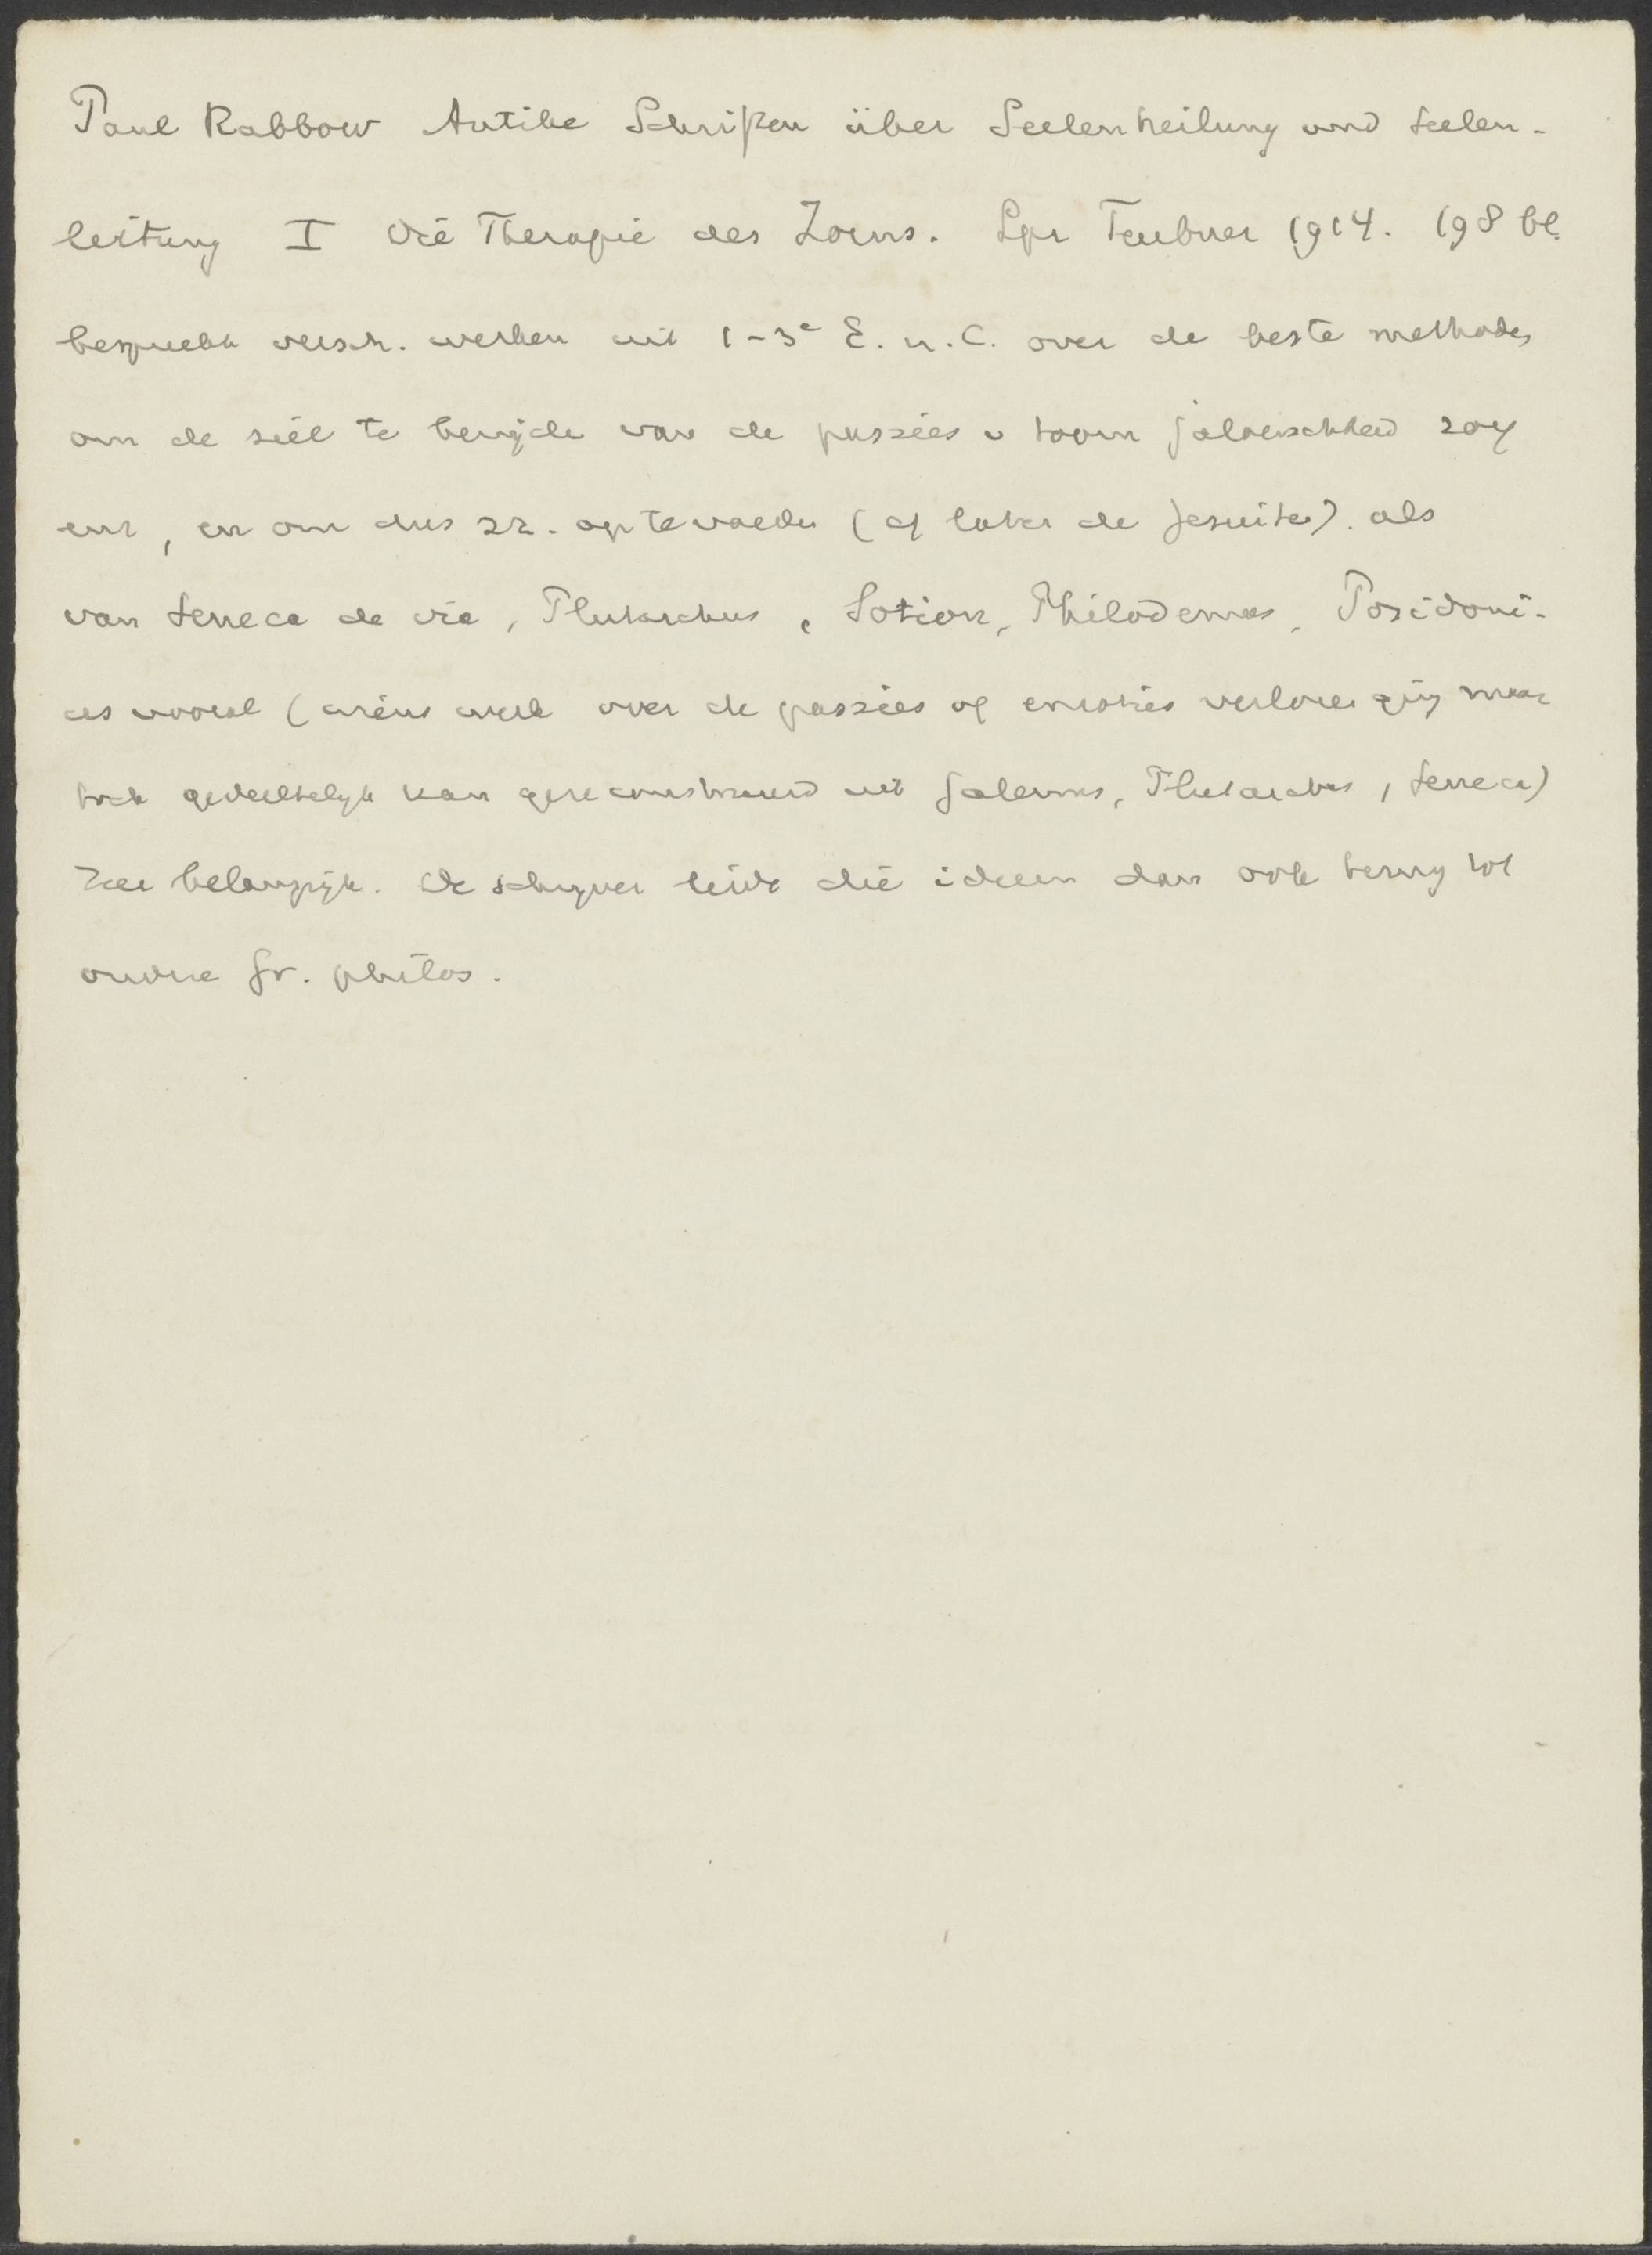 Paul Rabbow Antike Schriften über Seelenheilung und Seelen-
leitung I Die Therapie des Zorns. Lpz Teubner 1914. 198 bl.
bespreekt versch. werken uit 1-3e E. n. C. over de beste methodes
om de ziel te bevrijde van de passies v toorn jaloerschheid zorg
enz, en om dus zz. op te voede (cf later de Jesuite). als
van Seneca de ira, Plutarchus, Sotion, Philodemos, Posidoni-
us vooral (wiens werk over de passies of emoties verlore ging maar
toch gedeeltelijk kan gereconstrueerd uit Galenus, Plutarchus, Seneca)
Zeer belangrijk. De schrijver leidt die ideeen dan ook terug tot
oudre Gr. philos.